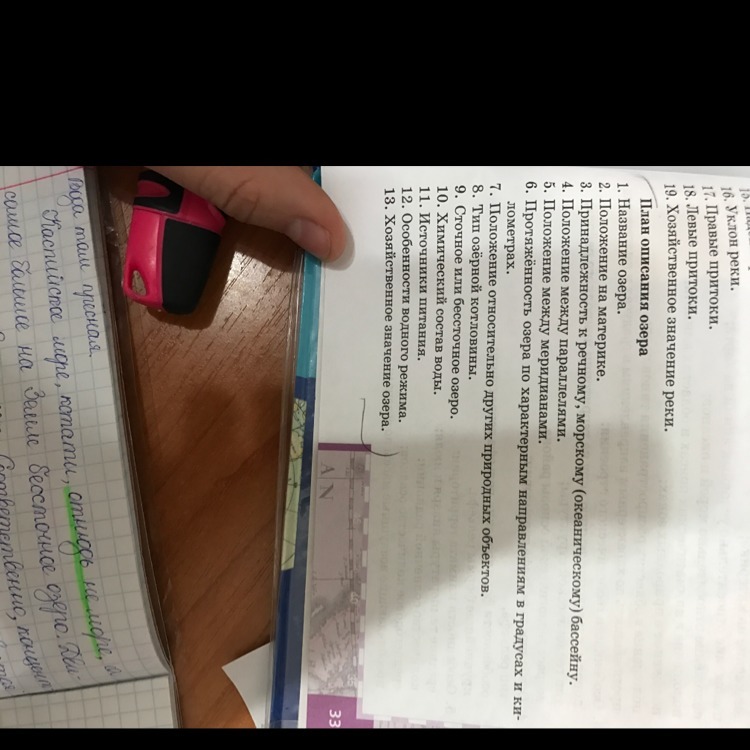 16. Уклон реки.
17. Правые притоки.
18. Левые притоки.
19. Хозяйственное значение реки.
План описания озера
1. Название озера.
2. Положение на материке.
3. Принадлежность к речному, морскому (океаническому) бассейну.
4. Положение между параллелями.
5. Положение между меридианами.
6. Протяжённость озера по характерным направлениям в градусах и ки-
лометрах.
7. Положение относительно других природных объектов.
8. Тип озёрной котловины.
9. Сточное или бессточное озеро.
10. Химический состав воды.
11. Источники питания.
12. Особенности водного режима.
13. Хозяйственное значение озера.
AN
33
вода там пресная.
Каспийское море, кстати, отнюдь не море, а
самое большое на Земле бессточное озеро.
Соответственно,